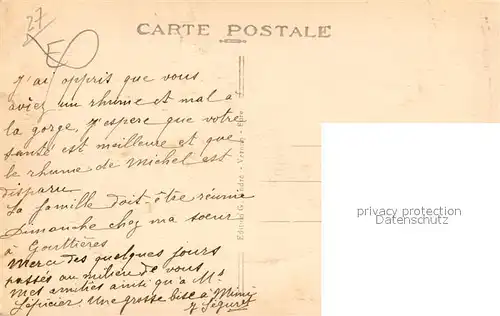 27
CARTE POSTALE
J'ai appris que vous
aviez un rhume et mal à
la gorge, J'espère que votre
santé est meilleure et que
le rhume de Michel est
disparu
La famille doit être réunie
Dimanche chez ma soeur
à Gouttières
Merci des quelques jours
passés au milieu de vous
Mes amitiés ainsi qu'à Mr
Lépicier, Une grosse bise à Mimi
J. Séguret
privacy protection
Datenschutz